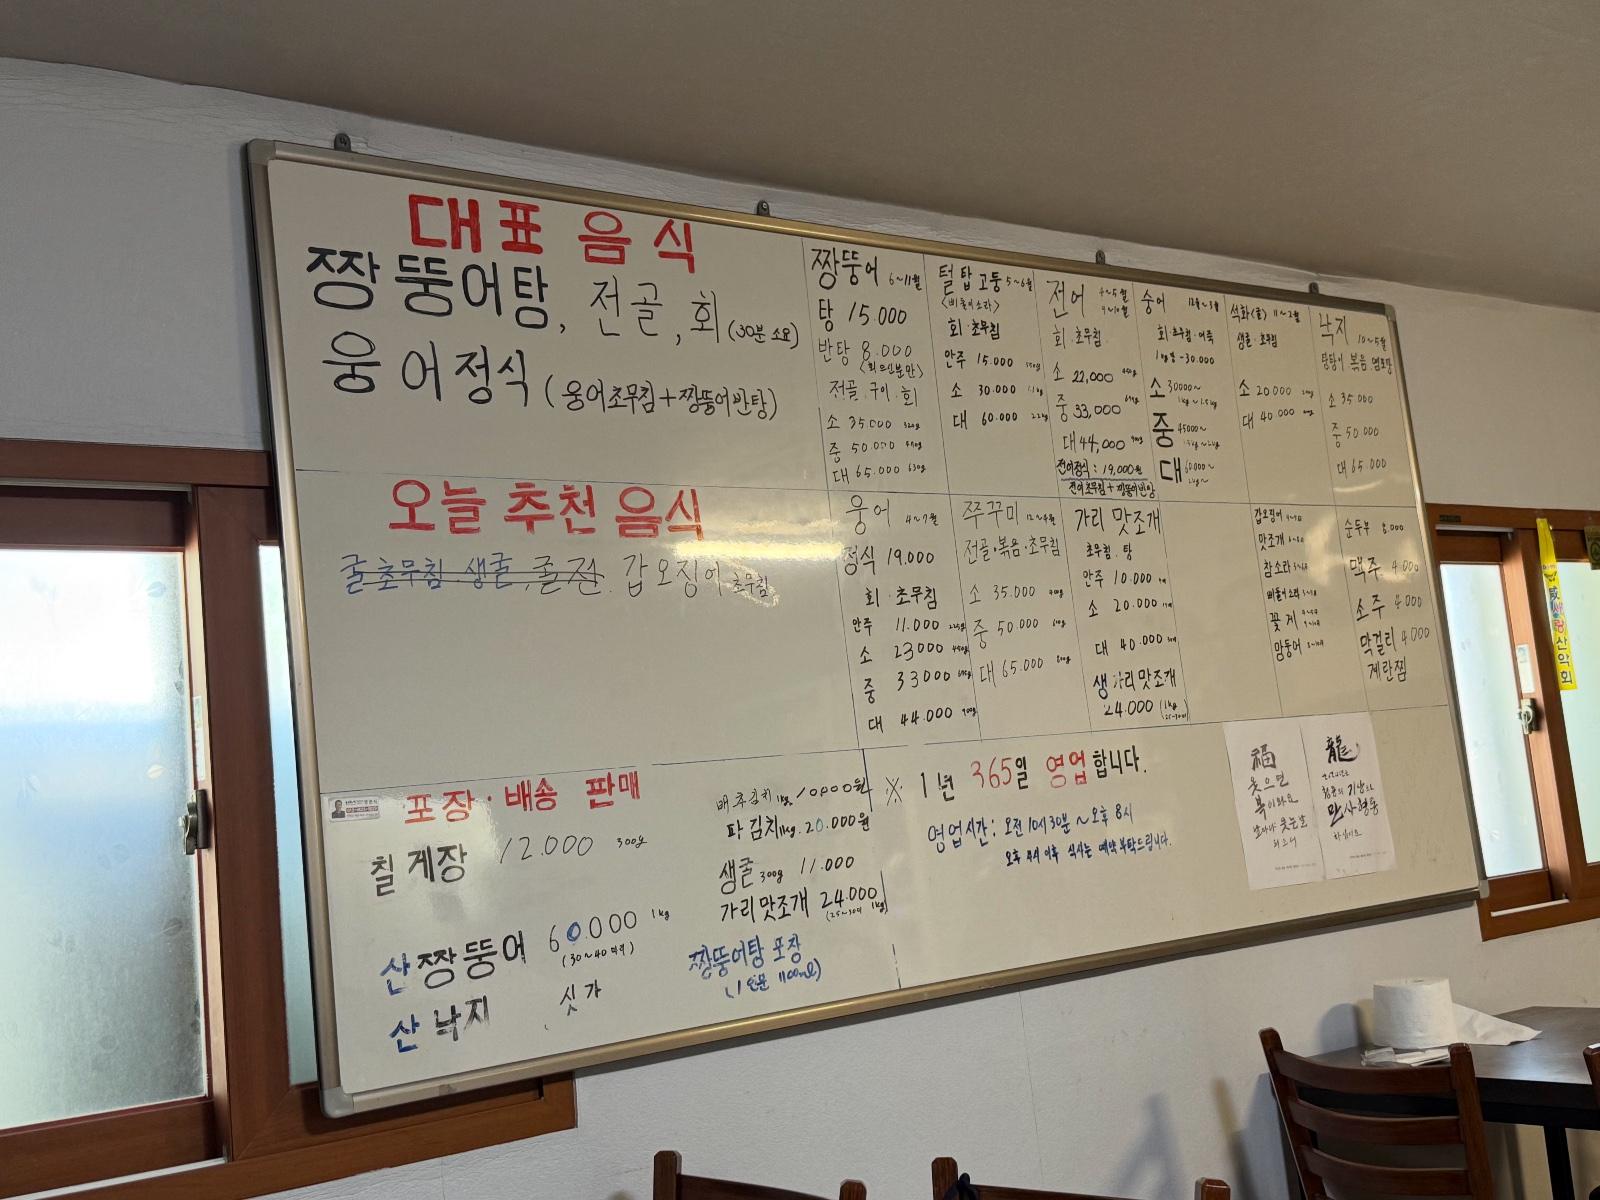 대표 음식
짱뚱어탕, 전골, 회 (30분 소요)
웅어정식 (웅어초무침+짱뚱어반탕)
오늘 추천 음식
굴초무침.생굴,졸전. 갑오징어초무침
짱뚱어 6~11월
탕 15.000
반탕 8.000
<회드신분만>
전골.구이.회
소 35.000 320g
중 50.000
대 65.000 630g
털탑고둥 5~6월
<삐뚤이소라>
회.초무침
안주 15.000
소 30.000
대 60.000
전어
회.초무침.
소 22,000
중 33,000
대 44,000
전어정식 : 19,000원
전어초무침+짱뚱어반탕
숭어 12월~3월
회.초무침.어죽
30.000
소 30000~
1kg~1.5kg
중 45000~
대 60.000~
2kg~
석화<굴> 11~2월
생굴.초무침
소 20000
대 40.000
낙지 10~5월
탕탕이 볶음 연포탕
소 35.000
중 50.000
대 65.000
웅어 4~7월
정식 19.000
회.초무침
안주 11.000 225g
소 23000 450g
중 33000
대 44.000 900g
쭈꾸미 12~4월
전골.볶음.초무침
소 35.000
중 50.000
대 65.000
가리맛조개
초무침.탕
안주 10.000
소 20.000
대 40.000
생가리맛조개
24.000 (1kg
25~30미)
갑오징어
맛조개
참소라
삐뚤이소라
꽃게
맘둥어
순두부 8.000
맥주 4.000
소주 4.000
막걸리 4.000
계란찜
포장·배송 판매
칠게장 12.000 300g
산짱뚱어 60.000 1kg
(30~40마리)
산낙지 싯가
배추김치 1kg. 10000원
파김치 1kg. 20.000원
생굴 300g 11.000
가리맛조개 24.000
(25~30미 1kg)
짱뚱어탕 포장
(1인분 1100ml)
※ 1년 365일 영업합니다.
영업시간: 오전 10시 30분 ~ 오후 8시
오후 4시 이후 식사는 예약부탁드립니다.
福
웃으면
복이와요
날마다 웃는날
되소서
龍
청룡의 기상으로
만사형통
하십시오
산악회